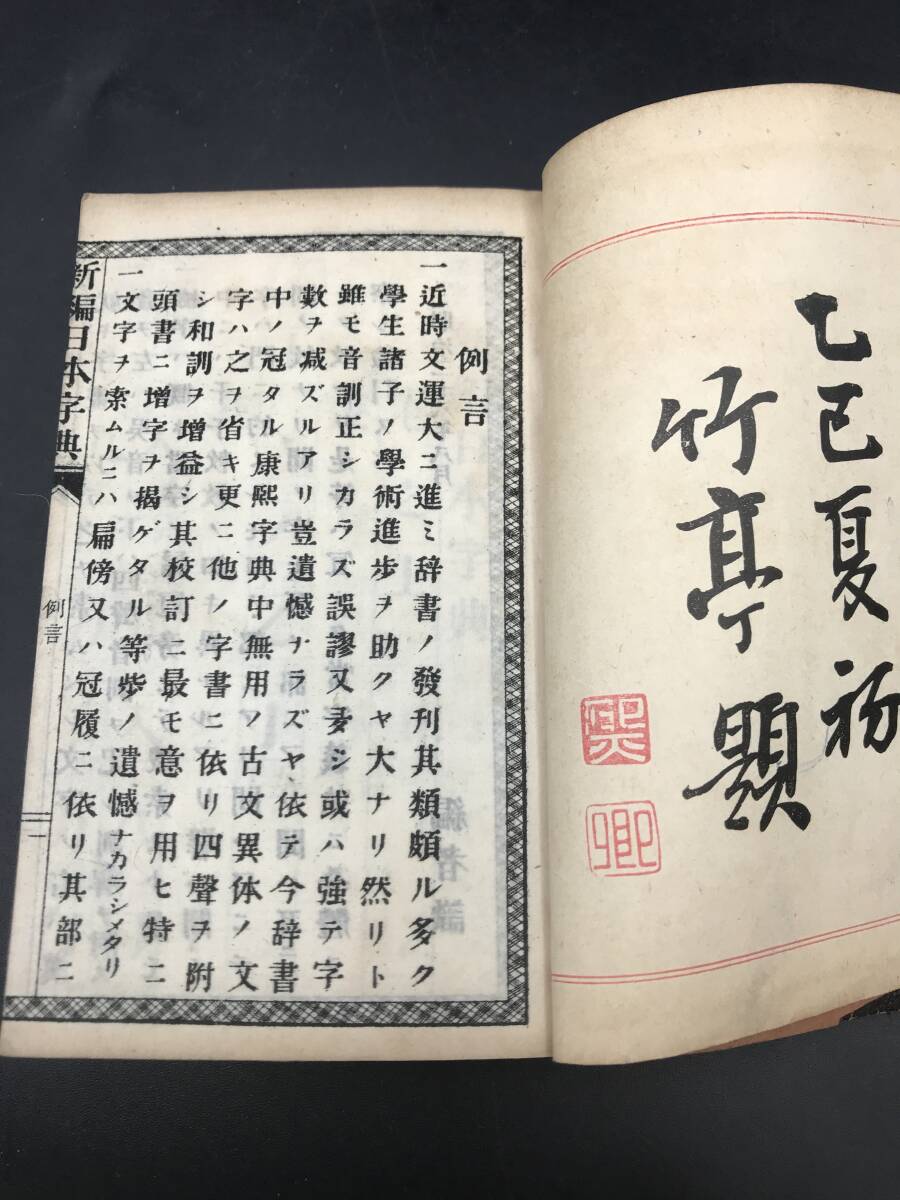 乙巳夏初
竹亭題
巽
卿
例言
一近時文運大ニ進ミ辞書ノ發刊其類頗ル多ク
學生諸子ノ學術進歩ヲ助クヤ大ナリ然リト
雖モ音訓正シカラズ誤謬又夛シ或ハ強テ字
數ヲ减ズルアリ豈遺憾ナラズヤ依テ今辞書
中ノ冠タル康熙字典中無用ノ古文異体ノ文
字ハ之ヲ省キ更ニ他ノ字書ニ依リ四聲ヲ附
シ和訓ヲ增益シ其校訂ニ最モ意ヲ用ヒ特ニ
頭書ニ增字ヲ揭ゲタル等歩ノ遺憾ナカラシメタリ
一文字ヲ索ムルニハ扁傍又ハ冠履ニ依リ其部ニ
新編日本字典
例言
一